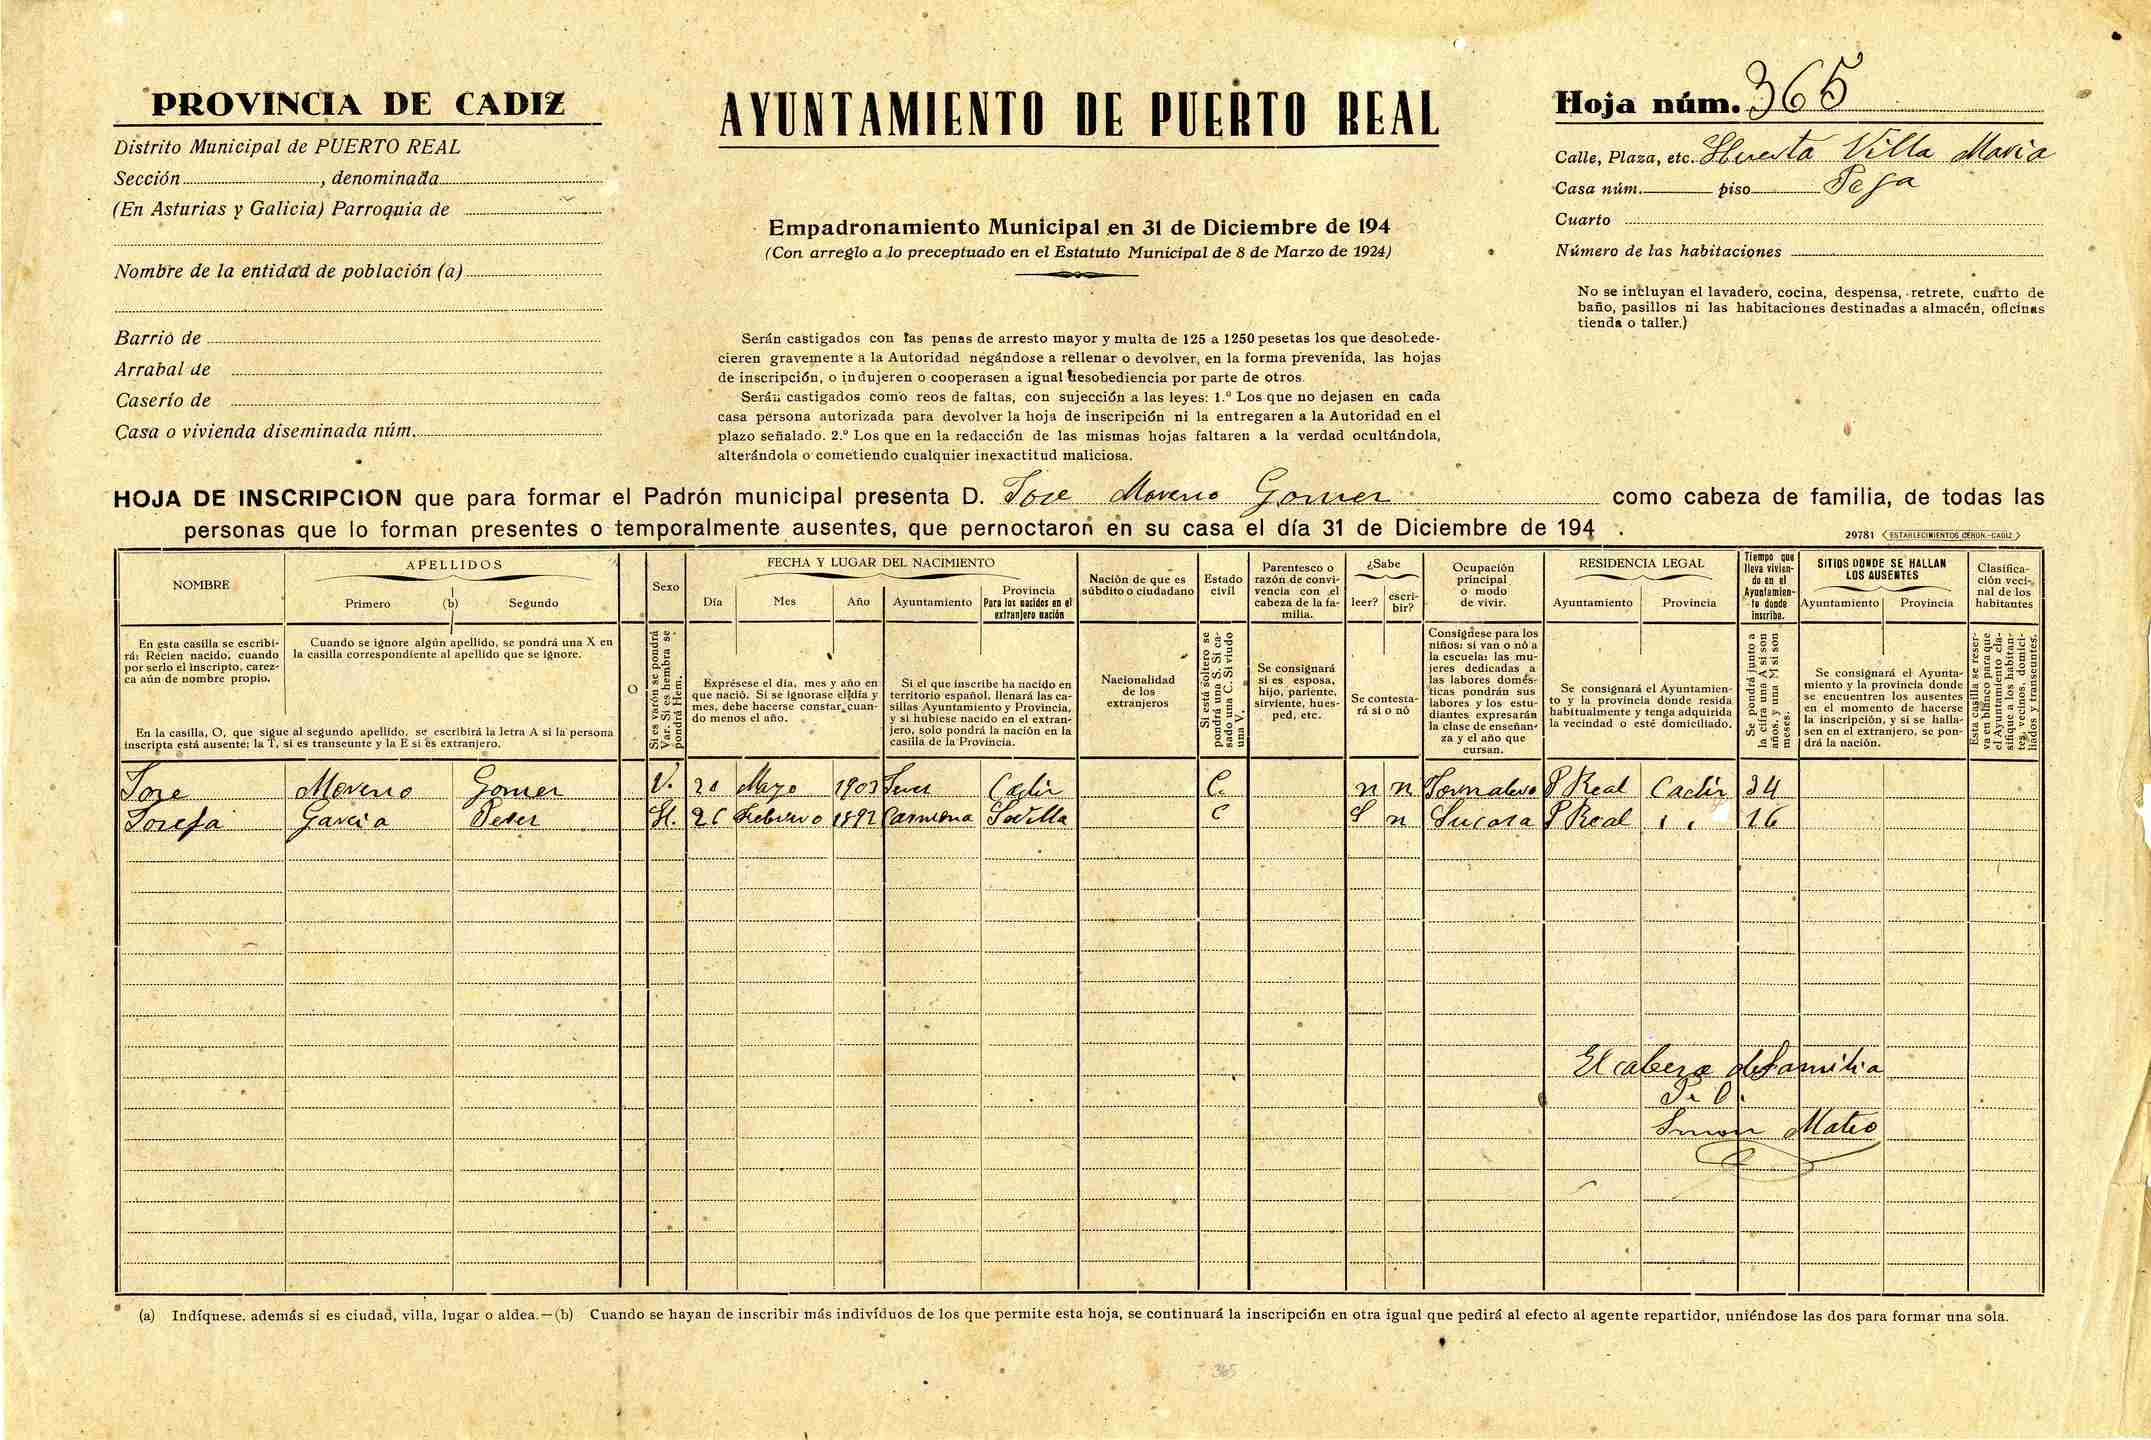 PROVINCIA DE CADIZ
Distrito Municipal de PUERTO REAL
Sección, denominada
(En Asturias y Galicia) Parroquia de
Nombre de la entidad de población (a)
Barrio de
Arrabal de
Caserío de
Casa o vivienda diseminada núm.
AYUNTAMIENTO DE PUERTO REAL
Empadronamiento Municipal en 31 de Diciembre de 194
(Con arreglo a lo preceptuado en el Estatuto Municipal de 8 de Marzo de 1924)
Serán castigados con las penas de arresto mayor y multa de 125 a 1250 pesetas los que desobede-
cieren gravemente a la Autoridad negándose a rellenar o devolver, en la forma prevenida, las hojas
de inscripción, o indujeren o cooperasen a igual desobediencia por parte de otros.
Serán castigados como reos de faltas, con sujección a las leyes: 1.º Los que no dejasen en cada
casa persona autorizada para devolver la hoja de inscripción ni la entregaren a la Autoridad en el
plazo señalado. 2.º Los que en la redacción de las mismas hojas faltaren a la verdad ocultándola,
alterándola o cometiendo cualquier inexactitud maliciosa.
Hoja núm. 365
Calle, Plaza, etc. Huerta Villa Maria
Casa núm. piso Peja
Cuarto
Número de las habitaciones
No se incluyan el lavadero, cocina, despensa, retrete, cuarto de
baño, pasillos ni las habitaciones destinadas a almacén, oficinas
tienda o taller.)
HOJA DE INSCRIPCION que para formar el Padrón municipal presenta D. Jose Moreno Gomez como cabeza de familia, de todas las
personas que lo forman presentes o temporalmente ausentes, que pernoctaron en su casa el día 31 de Diciembre de 194 .
29781 ESTABLECIMIENTOS CERON.-CADIZ
NOMBRE
APELLIDOS
Primero (b) Segundo
O
Sexo
FECHA Y LUGAR DEL NACIMIENTO
Día Mes Año Ayuntamiento
Provincia
Para los nacidos en el
extranjero nación
Nación de que es
súbdito o ciudadano
Estado
civil
Parentesco o
razón de convi-
vencia con el
cabeza de la fa-
milia.
¿Sabe
leer? escri-
bir?
Ocupación
principal
o modo
de vivir.
RESIDENCIA LEGAL
Ayuntamiento Provincia
Tiempo que
lleva vivien-
do en el
Ayuntamien-
to donde
inscribe.
SITIOS DONDE SE HALLAN
LOS AUSENTES
Ayuntamiento Provincia
Clasifica-
ción veci-
nal de los
habitantes
En esta casilla se escribi-
rá: Recien nacido, cuando
por serlo el inscripto, carez-
ca aún de nombre propio.
Cuando se ignore algún apellido, se pondrá una X en
la casilla correspondiente al apellido que se ignore.
En la casilla, O, que sigue al segundo apellido, se escribirá la letra A si la persona
inscripta está ausente; la T, si es transeunte y la E si es extranjero.
Si es varón se pondrá
Var. Si es hembra se
pondrá Hem.
Exprésese el día, mes y año en
que nació. Si se ignorase el día y
mes, debe hacerse constar cuan-
do menos el año.
Si el que inscribe ha nacido en
territorio español, llenará las ca-
sillas Ayuntamiento y Provincia,
y si hubiese nacido en el extran-
jero, solo pondrá la nación en la
casilla de la Provincia.
Nacionalidad
de los
extranjeros
Si está soltero se
pondrá una S. Si ca-
sado una C. Si viudo
una V.
Se consignará
si es esposa,
hijo, pariente,
sirviente, hues-
ped, etc.
Se contesta-
rá si o nó
Consígnese para los
niños: si van o nó a
la escuela: las mu-
jeres dedicadas a
las labores domés-
ticas pondrán sus
labores y los estu-
diantes expresarán
la clase de enseñan-
za y el año que
cursan.
Se consignará el Ayuntamien-
to y la provincia donde resida
habitualmente y tenga adquirida
la vecindad o esté domiciliado.
Se pondrá junto a
la cifra una A si son
años, y una M si son
meses.
Se consignará el Ayunta-
miento y la provincia donde
se encuentren los ausentes
en el momento de hacerse
la inscripción, y si se halla-
sen en el extranjero, se pon-
drá la nación.
Esta casilla se reser-
va en blanco para que
el Ayuntamiento cla-
sifique a los habitan-
tes, vecinos, domici-
liados y transeuntes.
Jose Moreno Gomez V. 20 Mayo 1903 Jerez Cadiz C. n n Jornalero P Real Cadiz 34
Josefa Garcia Perez H. 26 Febrero 1892 Carmona Sevilla C S n Su casa P Real 16
El cabeza de familia
P. O.
Simon Mateo
(a) Indíquese. además si es ciudad, villa, lugar o aldea.—(b) Cuando se hayan de inscribir más individuos de los que permite esta hoja, se continuará la inscripción en otra igual que pedirá al efecto al agente repartidor, uniéndose las dos para formar una sola.
365